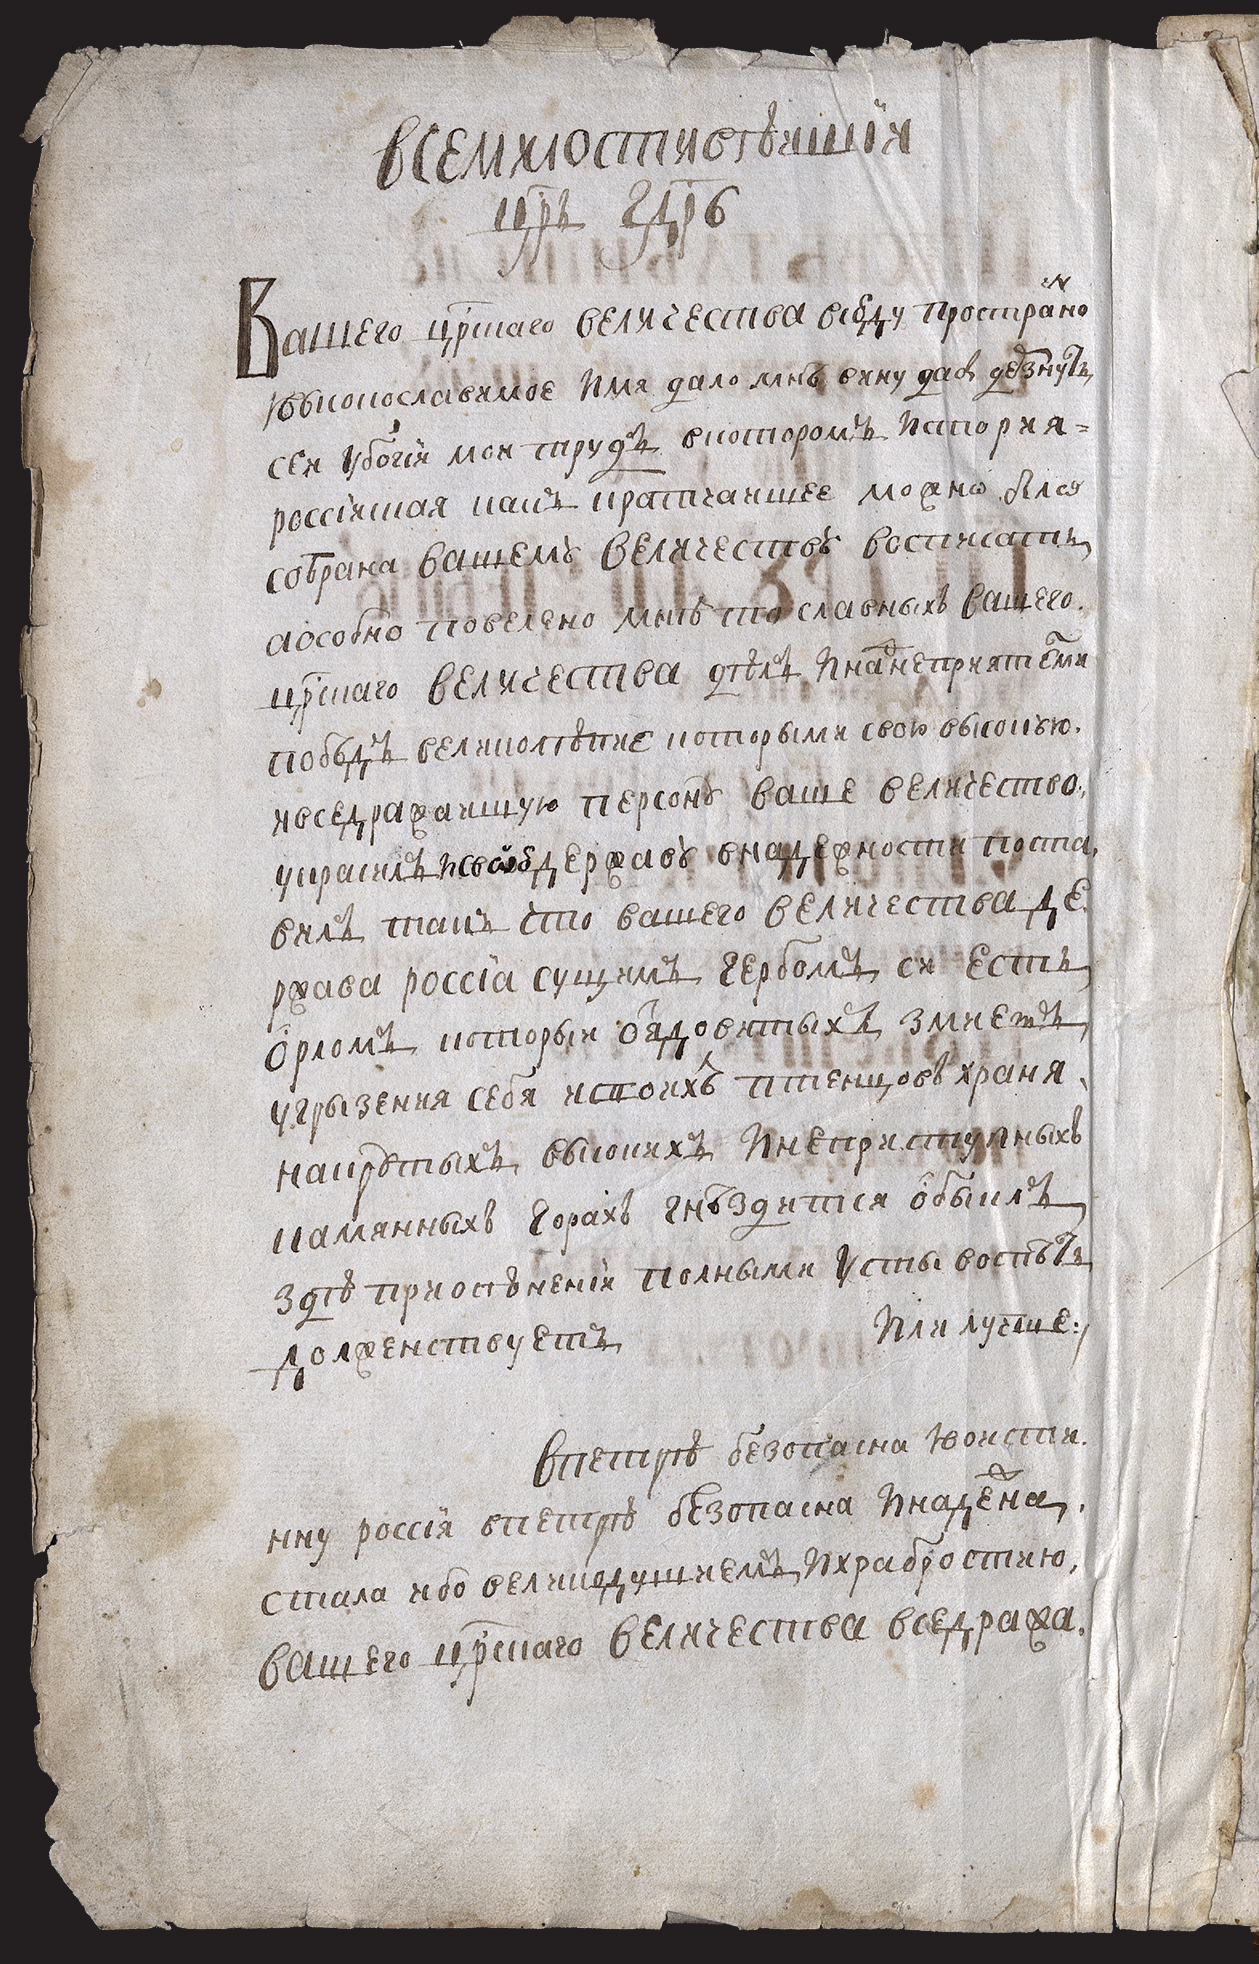 всемилостивѣишїи
црь гдрь
Вашего црскаго величества всюду пространно
ивысокославимое имя дало мнѣ вину дабы дерзнуть
сеи убогїи мои трудъ вкоторомъ история
россїиская какъ кратчаишее можно было
собрана вашему величеству восписать
аособно повелено мнѣ то славныхъ вашего
црскаго величества дѣлъ инаднеприятелми
побѣдъ великолѣпие которыми свою высокую
ивседражаишую персону ваше величество
украсилъ исвою державу внадежности поста
вилъ такъ что вашего величества де
ржава россїа сущимъ гербомъ си есть
орломъ которыи ѿядовитыхъ змиевъ
угрызения себя исвоихъ птенцовъ храня
накрутыхъ высокихъ инеприступныхъ
каменныхъ горахъ гнѣздитися обыклъ
здѣ приосѣненїи полными усты воспѣть
долженствуетъ или лучше:
впетрѣ безопасна воисти
нну россїя впетрѣ безопасна инадежна
стала ибо великодушиемъ ихрабростию
вашего црскаго величества вседража